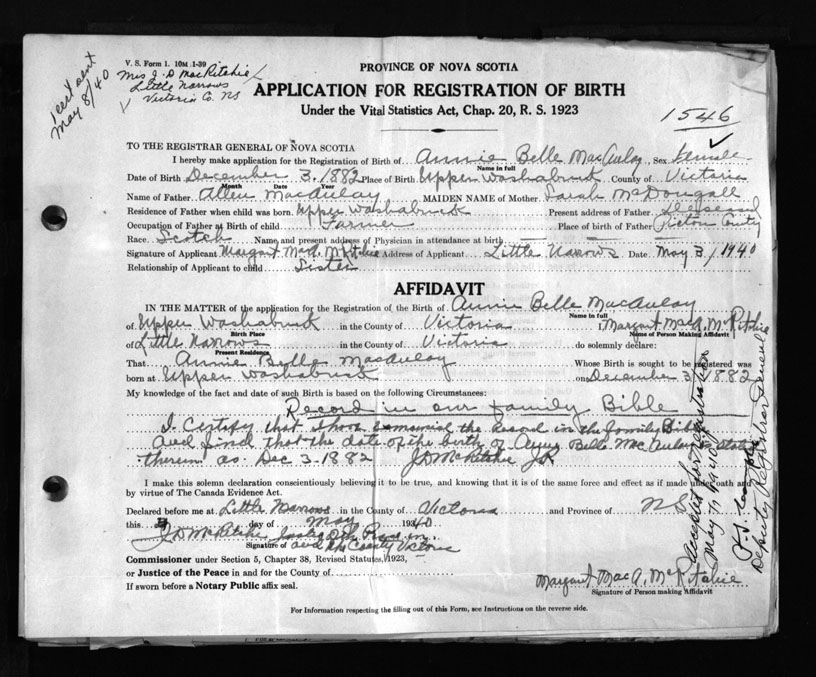 V. S. Form 1. 10M 1-39
Mrs J. D MacRitchie
Little Narrows
Victoria Co. NS
1 cert sent
May 8/40
PROVINCE OF NOVA SCOTIA
APPLICATION FOR REGISTRATION OF BIRTH
Under the Vital Statistics Act, Chap. 20, R. S. 1923
1546
TO THE REGISTRAR GENERAL OF NOVA SCOTIA
I hereby make application for the Registration of Birth of Annie Belle MacAulay, Sex female
Name in full
Date of Birth December 3. 1882 Place of Birth Upper Washabuck County of Victoria
Month Date Year
Name of Father Allen MacAulay MAIDEN NAME of Mother Sarah McDougall
Residence of Father when child was born Upper Washabuck Present address of Father Deceased
Occupation of Father at Birth of child Farmer Place of birth of Father Victoria County
Race Scotch Name and present address of Physician in attendance at birth
Signature of Applicant Margaret MacA. McRitchie Address of Applicant Little Narrows Date May 3/1940
Relationship of Applicant to child Sister
AFFIDAVIT
IN THE MATTER of the application for the Registration of the Birth of Annie Belle MacAulay
Name in full
of Upper Washabuck in the County of Victoria I, Margaret MacA. McRitchie
Birth Place Name of Person Making Affidavit
of Little Narrows in the County of Victoria do solemnly declare:
Present Residence
That Annie Belle MacAulay Whose Birth is sought to be registered was
born at Upper Washabuck on December 3 1882
My knowledge of the fact and date of such Birth is based on the following Circumstances:
Record in our family Bible
I Certify that I have examined the Record in the family Bible
and find that the date of the birth of Annie Belle MacAulay is stated
therein as Dec 3-1882 JD McRitchie JP
I make this solemn declaration conscientiously believing it to be true, and knowing that it is of the same force and effect as if made under oath and
by virtue of The Canada Evidence Act.
Declared before me at Little Narrows in the County of Victoria and Province of NS
this 3 day of May 1940
JD McRitchie Justice of the Peace in
Signature of and for County Victoria
Commissioner under Section 5, Chapter 38, Revised Statutes, 1923,
or Justice of the Peace in and for the County of
If sworn before a Notary Public affix seal.
Margaret MacA. McRitchie
Signature of Person making Affidavit
For Information respecting the filling out of this Form, see Instructions on the reverse side.
Accepted for registration
May 7, 1940
Deputy Registrar General